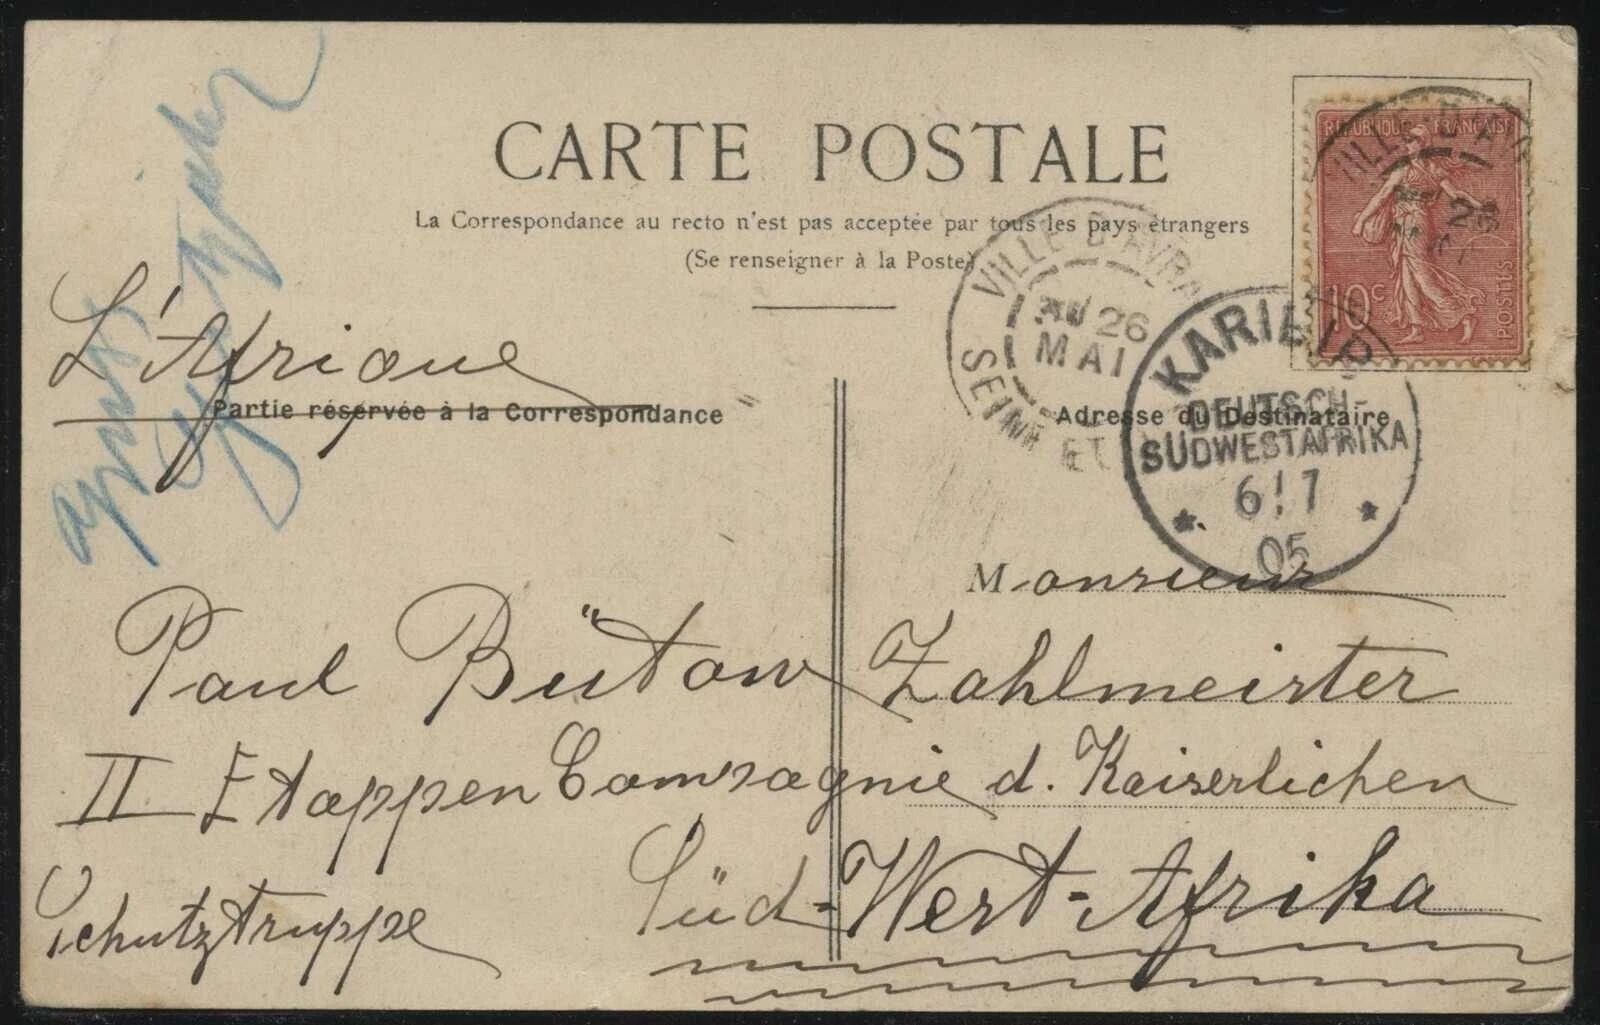 CARTE POSTALE
La Correspondance au recto n'est pas acceptée par tous les pays étrangers
(Se renseigner à la Poste)
RÉPUBLIQUE FRANÇAISE
10c
POSTES
VILLE D'AVRAY
26
MAI
SEINE ET
KARIBIB
DEUTSCH-
SÜDWESTAFRIKA
6/7
05
L'Afrique
Partie réservée à la Correspondance
Adresse du Destinataire
Monsieur
Paul Bütow Zahlmeister
II Etappen Compagnie d. Kaiserlichen
Schutztruppe Süd-West-Afrika